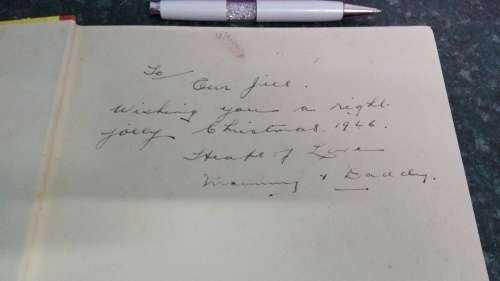 To
Our Jill.
Wishing you a right
jolly Christmas. 1946.
Heaps of Love
Mummy & Daddy.